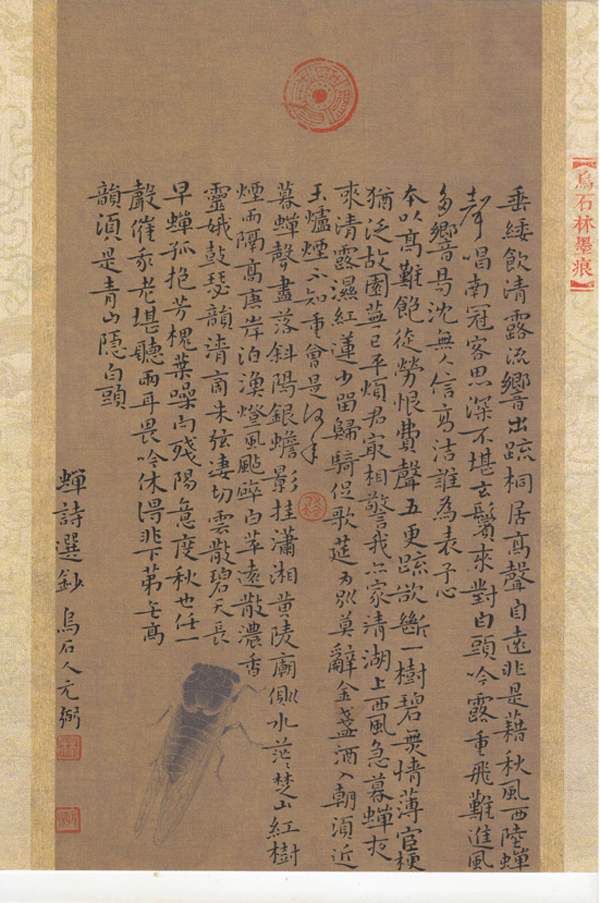 垂緌飲清露流響出疏桐居高聲自遠非是藉秋風西陸蟬
聲唱南冠客思深不堪玄鬢來對白頭吟露重飛難進風
多響易沈無人信高潔誰為表予心
本以高難飽徒勞恨費聲五更疏欲斷一樹碧無情薄宦梗
猶泛故園蕪已平煩君最相警我亦家清湖上西風急暮蟬夜
來清露濕紅蓮少留歸騎促歌筵為別莫辭金盞酒入朝須近
玉爐煙不知重會是何年
暮蟬聲盡落斜陽銀蟾影挂瀟湘黃陵廟側水茫〻楚山紅樹
煙雨隔高唐岸泊漁燈風颭碎白蘋遠散濃香
靈娥鼓瑟韻清商朱弦淒切雲散碧天長
早蟬孤抱芳槐葉噪向殘陽意度秋也任一
聲催我老堪聽兩耳畏吟休得非下第無高
韻須是青山隱白頭
蟬詩選鈔 烏石人元弼
【烏石林墨痕】